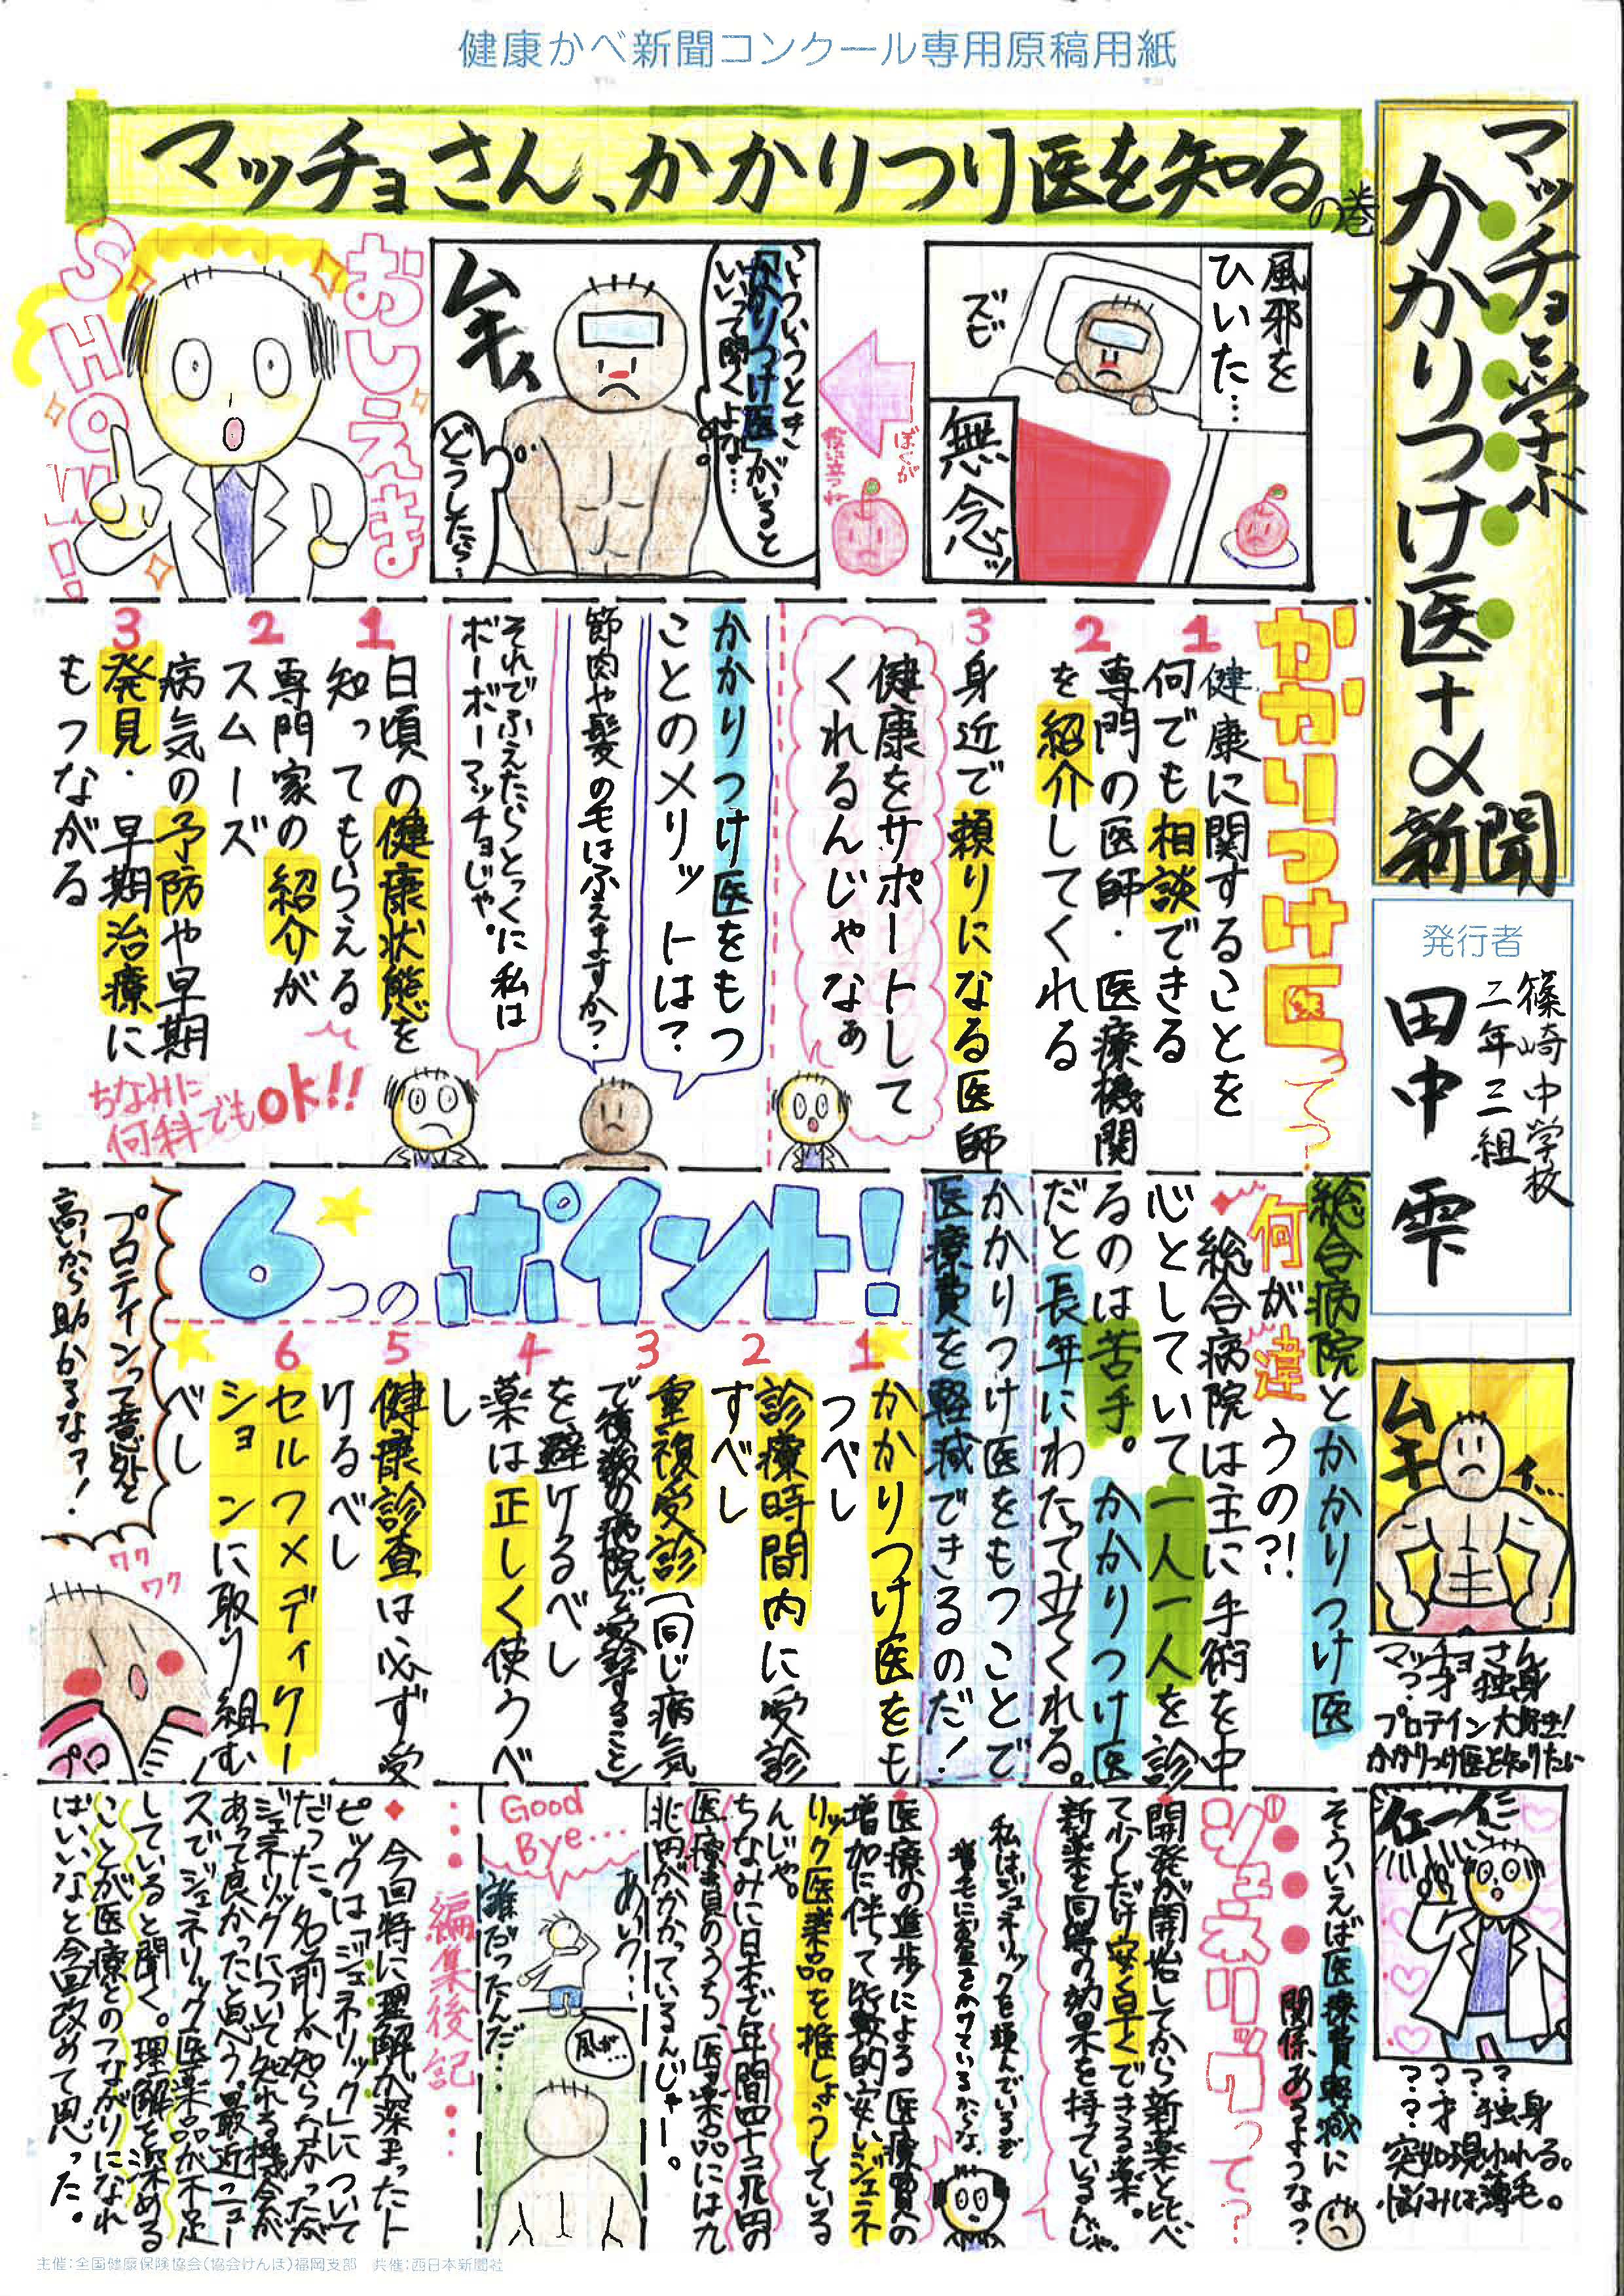 健康かべ新聞コンクール専用原稿用紙
マッチョと学ぶ
かかりつけ医+α
新聞
発行者
篠崎中学校
二年三組
田中 雫
マッチョさん、かかりつけ医を知るの巻
風邪を
ひいた…
ズビ
無念ッ
ぼくが
役に立つね
こういうとき
「かかりつけ医」がいると
いいって聞くよな…。
ムキッ
どうしたら…
おしえま
SHOW!!
かかりつけ医って?
1 健康に関することを
何でも相談できる
2 専門の医師・医療機関
を紹介してくれる
3 身近で頼りになる医師
健康をサポートして
くれるんじゃなぁ
かかりつけ医をもつ
ことのメリットは?
筋肉や髪の毛はふえますか?
それでふえたらとっくに私は
ボーボーマッチョじゃ。
1 日頃の健康状態を
知ってもらえる
2 専門家の紹介が
スムーズ
3 病気の予防や早期
発見・早期治療に
もつながる
ちなみに
何科でもok!!
総合病院とかかりつけ医
何が違うの?!
総合病院は主に手術を中
心としていて一人一人を診
るのは苦手。かかりつけ医
だと長年にわたってみてくれる。
かかりつけ医をもつことで
医療費を軽減できるのだ!
6つのポイント!
1 かかりつけ医をも
つべし
2 診療時間内に受診
すべし
3 重複受診(同じ病気
で複数の病院で受診すること)
を避けるべし
4 薬は正しく使うべ
し
5 健康診査は必ず受
けるべし
6 セルフメディケー
ションに取り組む
べし
プロテインって意外と
高いから助かるなァ!
ワク
ワク
プロ
ムキ
マッチョさん
?才 独身
プロテイン大好き!
かかりつけ医を知りたい
イエーイ
???
??才 独身
突如現われる。
悩みは薄毛。
そういえば医療費軽減に
関係あるような?
ジェネリックって?
開発が開始してから新薬と比べ
て少しだけ安く早くできる薬。
新薬と同等の効果を持っているんじゃ。
私はジェネリックを頼んでいるぞ
増毛にお金をかけているからな。
医療の進歩による医療費の
増加に伴って比較的安いジェネ
リック医薬品を推しょうしている
んじゃ。
ちなみに日本で年間四十三兆円の
医療費のうち、医薬品には九
兆円がかかっているんじゃー。
あれ?…
Good
Bye…
誰だったんだ…
風が…
…編集後記…
今回特に理解が深まったト
ピックは「ジェネリック」について
だった。名前しか知らなかったが
ジェネリックについて知れる機会が
あって良かったと思う。最近ニュー
スでジェネリック医薬品が不足
していると聞く。理解を深める
ことが医療とのつながりになれ
ばいいなと今回改めて思った。
主催:全国健康保険協会(協会けんぽ)福岡支部 共催:西日本新聞社